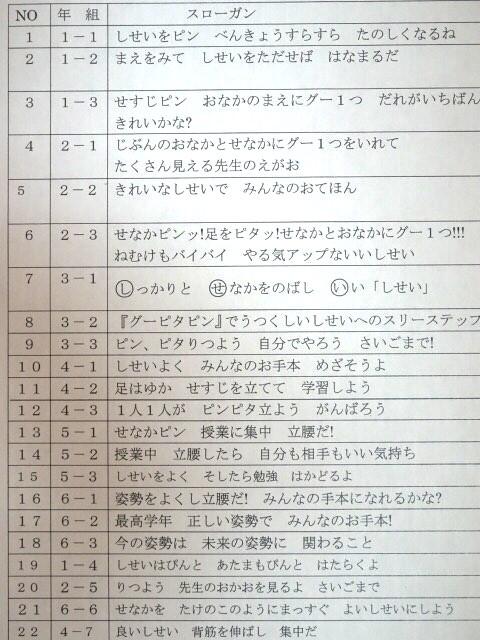 NO 年 組 スローガン
1 1－1 しせいをピン べんきょうすらすら たのしくなるね
2 1－2 まえをみて しせいをただせば はなまるだ
3 1－3 せすじピン おなかのまえにグー1つ だれがいちばん
きれいかな?
4 2－1 じぶんのおなかとせなかにグー1つをいれて
たくさん見える先生のえがお
5 2－2 きれいなしせいで みんなのおてほん
6 2－3 せなかピンッ!足をピタッ!せなかとおなかにグー1つ!!!
ねむけもバイバイ やる気アップないいしせい
7 3－1 しっかりと せなかをのばし いい「しせい」
8 3－2 『グーピタピン』でうつくしいしせいへのスリーステップ
9 3－3 ピン、ピタりつよう 自分でやろう さいごまで!
10 4－1 しせいよく みんなのお手本 めざそうよ
11 4－2 足はゆか せすじを立てて 学習しよう
12 4－3 1人1人が ピンピタ立よう がんばろう
13 5－1 せなかピン 授業に集中 立腰だ!
14 5－2 授業中 立腰したら 自分も相手もいい気持ち
15 5－3 しせいをよく そしたら勉強 はかどるよ
16 6－1 姿勢をよくし立腰だ! みんなの手本になれるかな?
17 6－2 最高学年 正しい姿勢で みんなのお手本!
18 6－3 今の姿勢は 未来の姿勢に 関わること
19 1－4 しせいはぴんと あたまもぴんと はたらくよ
20 2－5 りつよう 先生のおかおを見るよ さいごまで
21 6－6 せなかを たけのこのようにまっすぐ よいしせいにしよう
22 4－7 良いしせい 背筋を伸ばし 集中だ